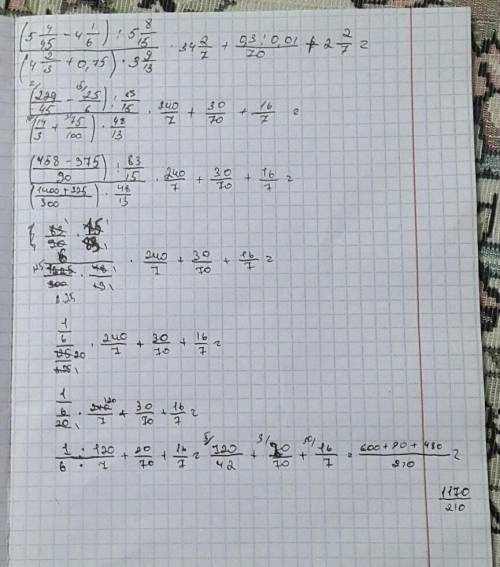 (5 4/45 - 4 1/6) : 5 8/15
(4 2/3 + 0,75) · 3 9/13 · 34 2/7 + 0,3 : 0,01 / 70 + 2 2/7 =
(229/45 - 25/6) : 83/15
(14/3 + 75/100) · 48/13 · 240/7 + 30/70 + 16/7 =
(458 - 375 / 90) : 83/15
(1400 + 225 / 300) · 48/13 · 240/7 + 30/70 + 16/7 =
83/90 · 15/83
6
1625/300 · 48/13 · 240/7 + 30/70 + 16/7 =
1/6
20 · 240/7 + 30/70 + 16/7 =
1/6
20 · 240/7 + 30/70 + 16/7 =
1 · 120 / 6 · 7 + 30/70 + 16/7 = 120/42 + 30/70 + 16/7 = 600 + 90 + 480 / 210 =
1170/210